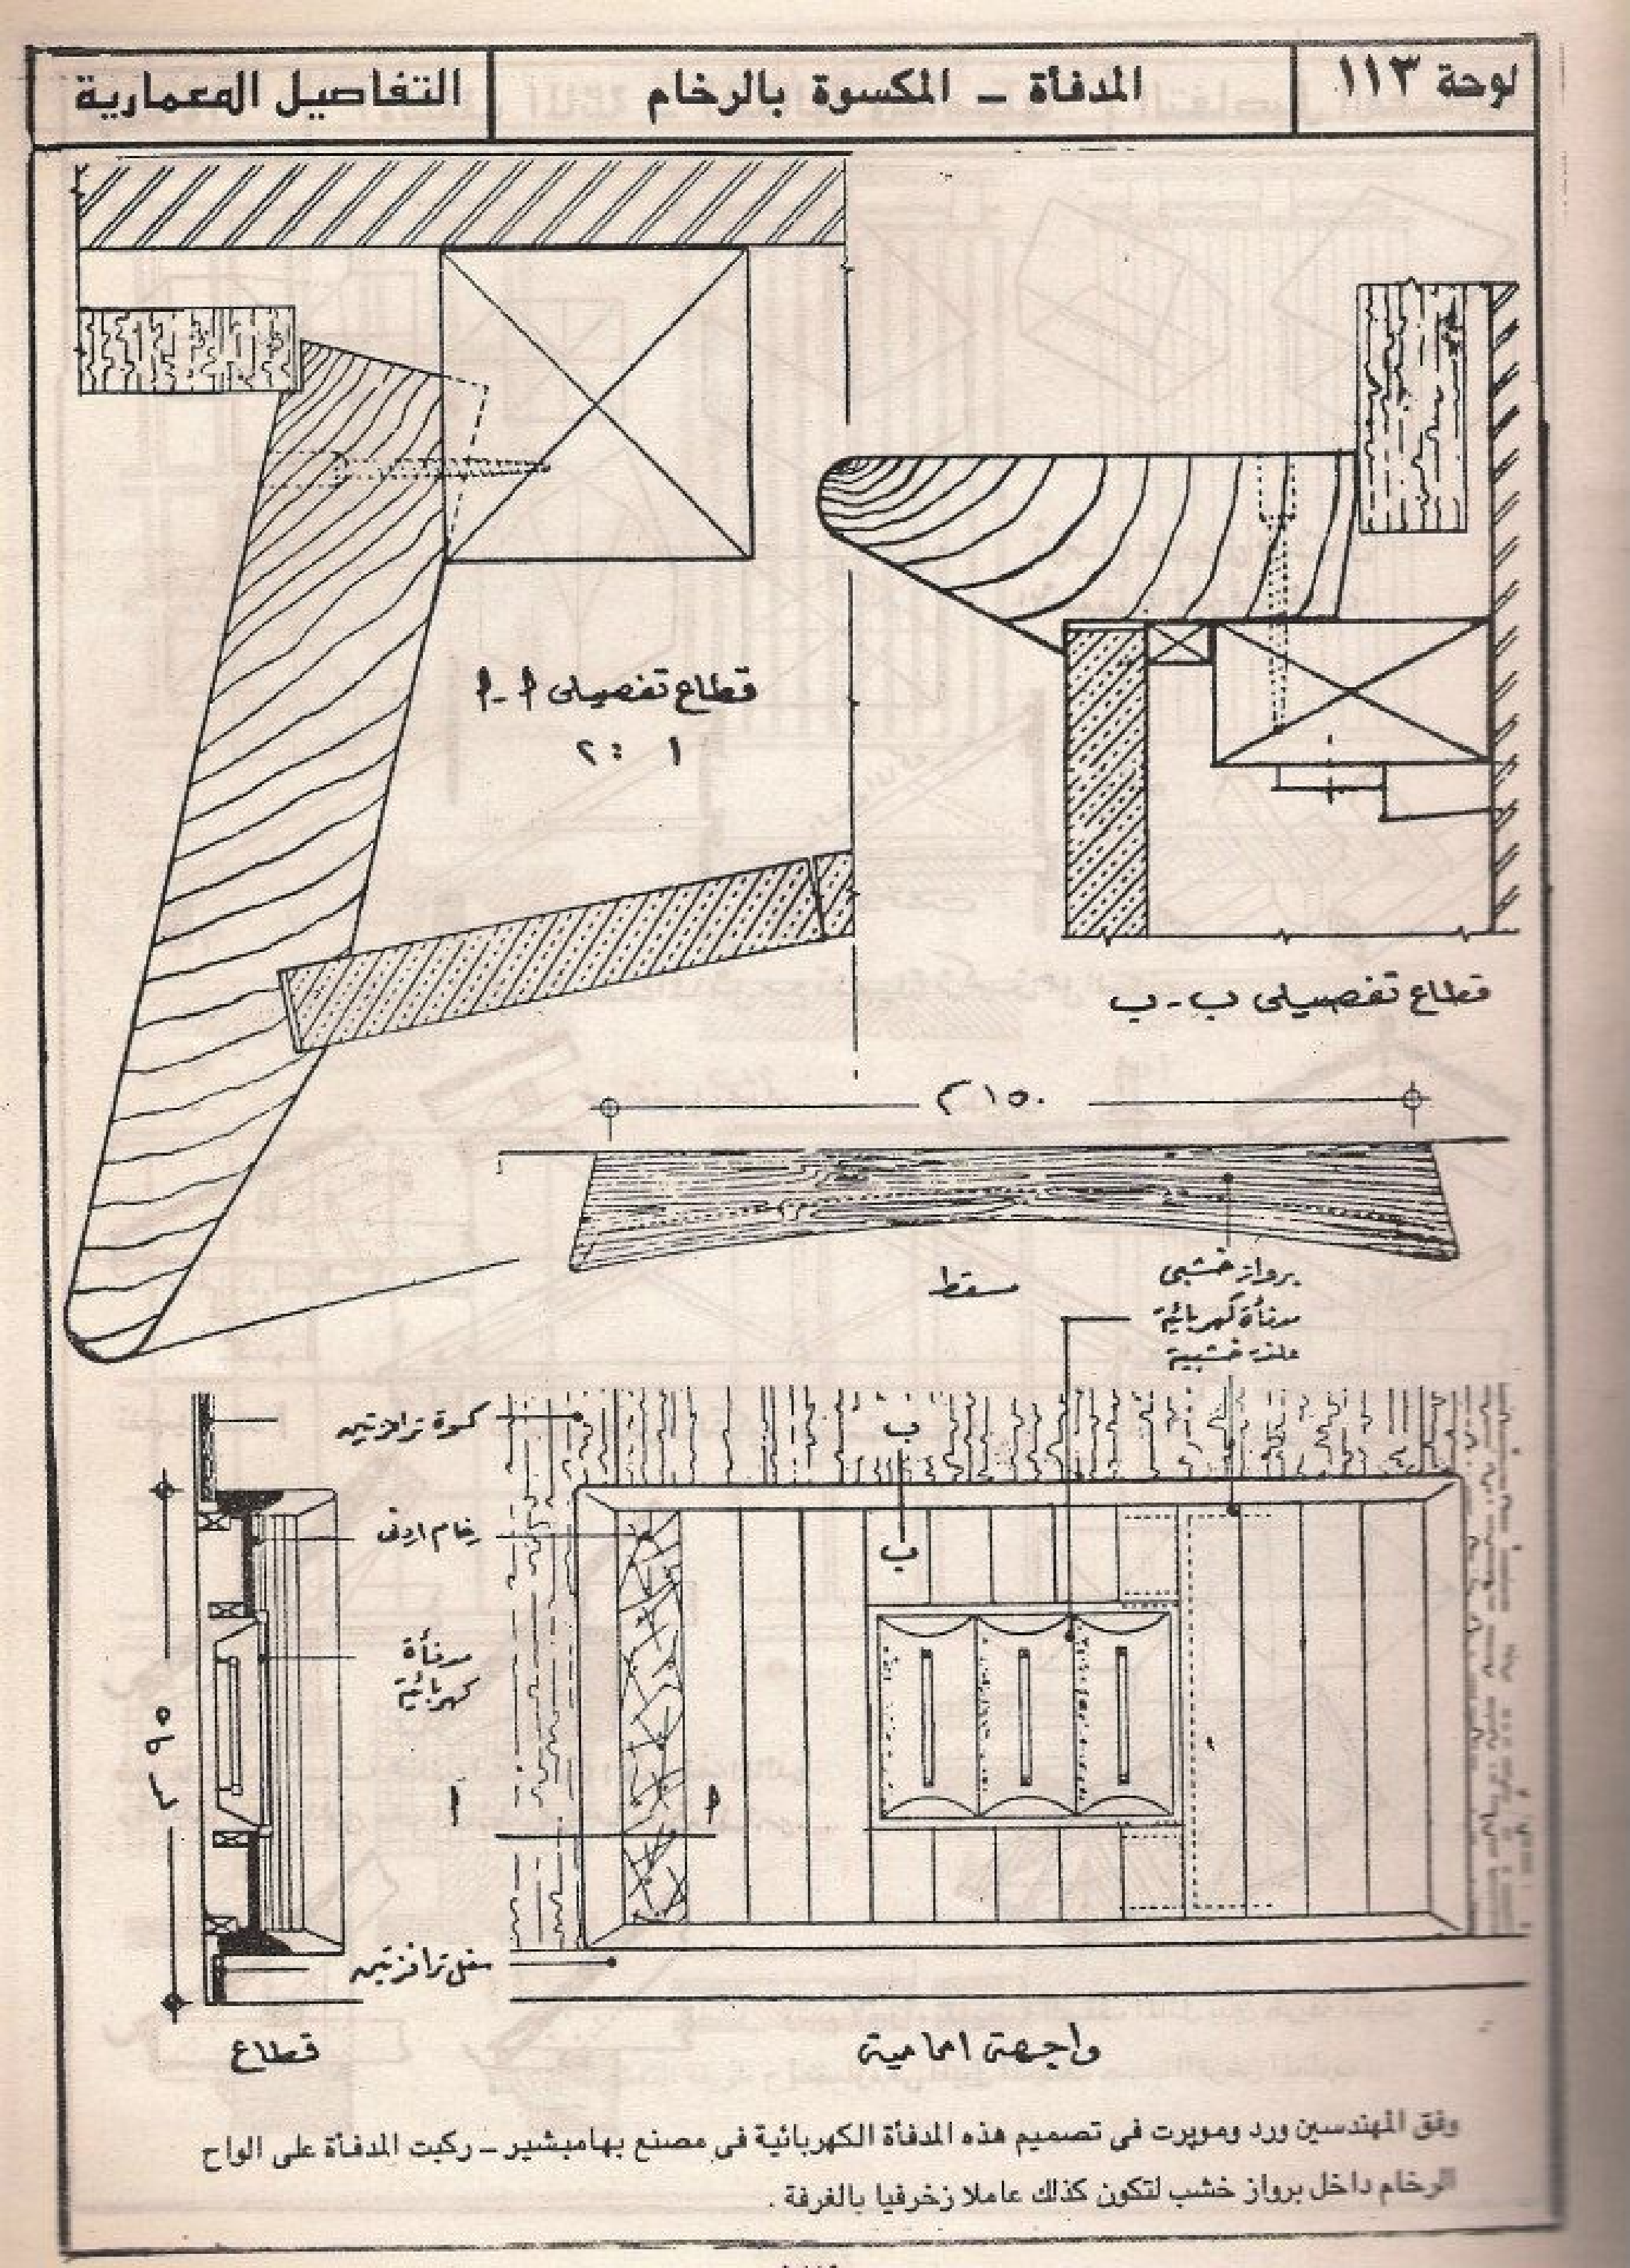 لوحة ١١٣
المدفأة - المكسوة بالرخام
التفاصيل المعمارية
قطاع تفصيلى أ-أ
١ : ٢
قطاع تفصيلى ب-ب
١٥٠ م
مسقط
برواز خشبى
مدفأة كهربائية
خشبية
كسوة ترافرتين
ب
ب
رخام
مدفأة
كهربائية
٩٥
أ
أ
سفل ترافرتين
قطاع
واجهة امامية
وفق المهندسين ورد وموبرت فى تصميم هذه المدفأة الكهربائية فى مصنع بهامبشير - ركبت المدفأة على الواح
الرخام داخل برواز خشب لتكون كذلك عاملا زخرفيا بالغرفة .